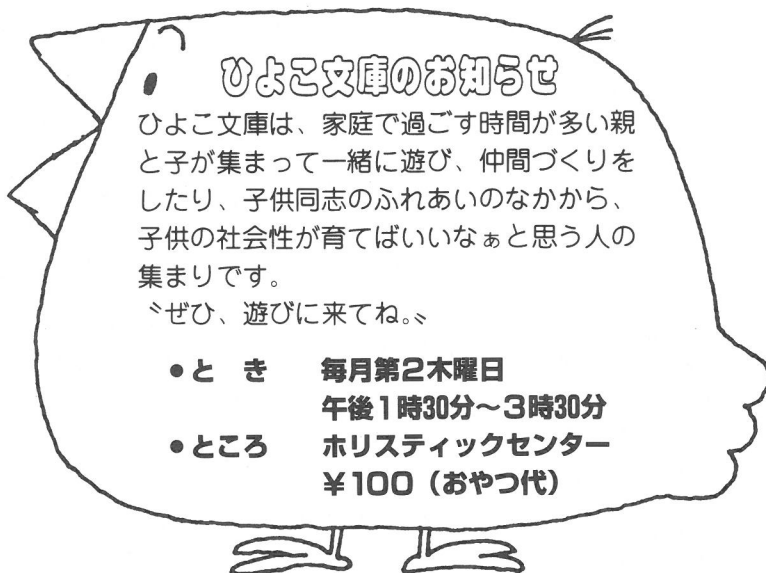 ひよこ文庫のお知らせ
ひよこ文庫は、家庭で過ごす時間が多い親
と子が集まって一緒に遊び、仲間づくりを
したり、子供同志のふれあいのなかから、
子供の社会性が育てばいいなぁと思う人の
集まりです。
〝ぜひ、遊びに来てね。〟
●と　き　毎月第2木曜日
午後1時30分～3時30分
●ところ　ホリスティックセンター
￥100（おやつ代）